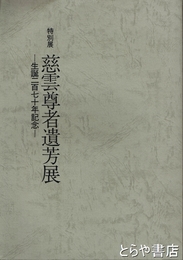 特別展
慈雲尊者遺芳展
―生誕二百七十年記念―
©とらや書店